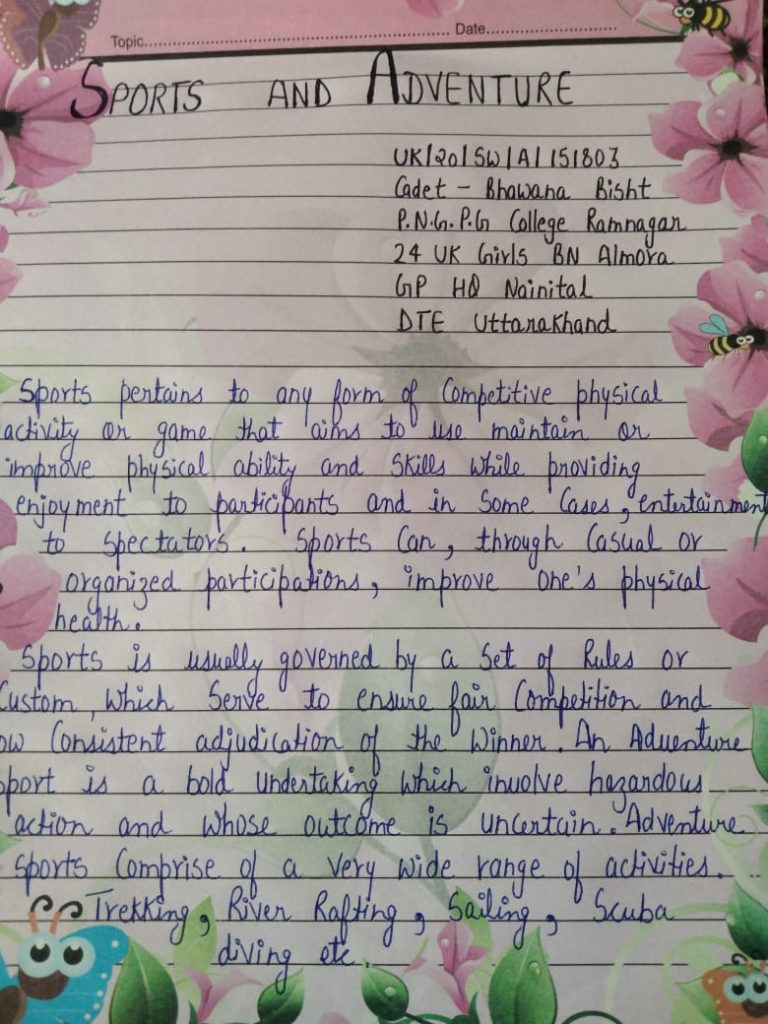 Topic.......... Date..........
SPORTS AND ADVENTURE
UK/20/SW/A/151803
Cadet - Bhawana Bisht
P.N.G.P.G College Ramnagar
24 UK Girls BN Almora
GP HQ Nainital
DTE Uttarakhand
Sports pertains to any form of Competitive physical
activity or game that aims to use maintain or
improve physical ability and Skills While providing
enjoyment to participants and in Some Cases, entertainment
to Spectators. Sports Can, through Casual or
organized participations, improve One's physical
health.
Sports is usually governed by a Set of Rules or
Custom, Which Serve to ensure fair Competition and
ow Consistent adjudication of the Winner. An Adventure
port is a bold Undertaking Which involve hazardous
action and Whose outcome is Uncertain. Adventure
Sports Comprise of a very wide range of activities.
Trekking, River Rafting, Sailing, Scuba
diving etc.